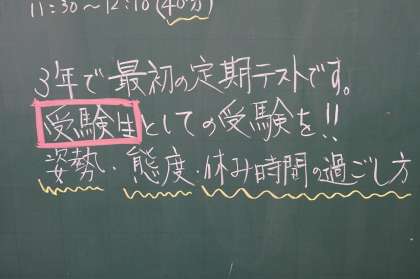 11:30～12:10 (40分)
3年で最初の定期テストです。
受験生としての受験を!!
姿勢・態度・休み時間の過ごし方